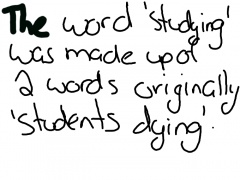 The word 'studying'
was made upof
2 words originally
'students dying'.